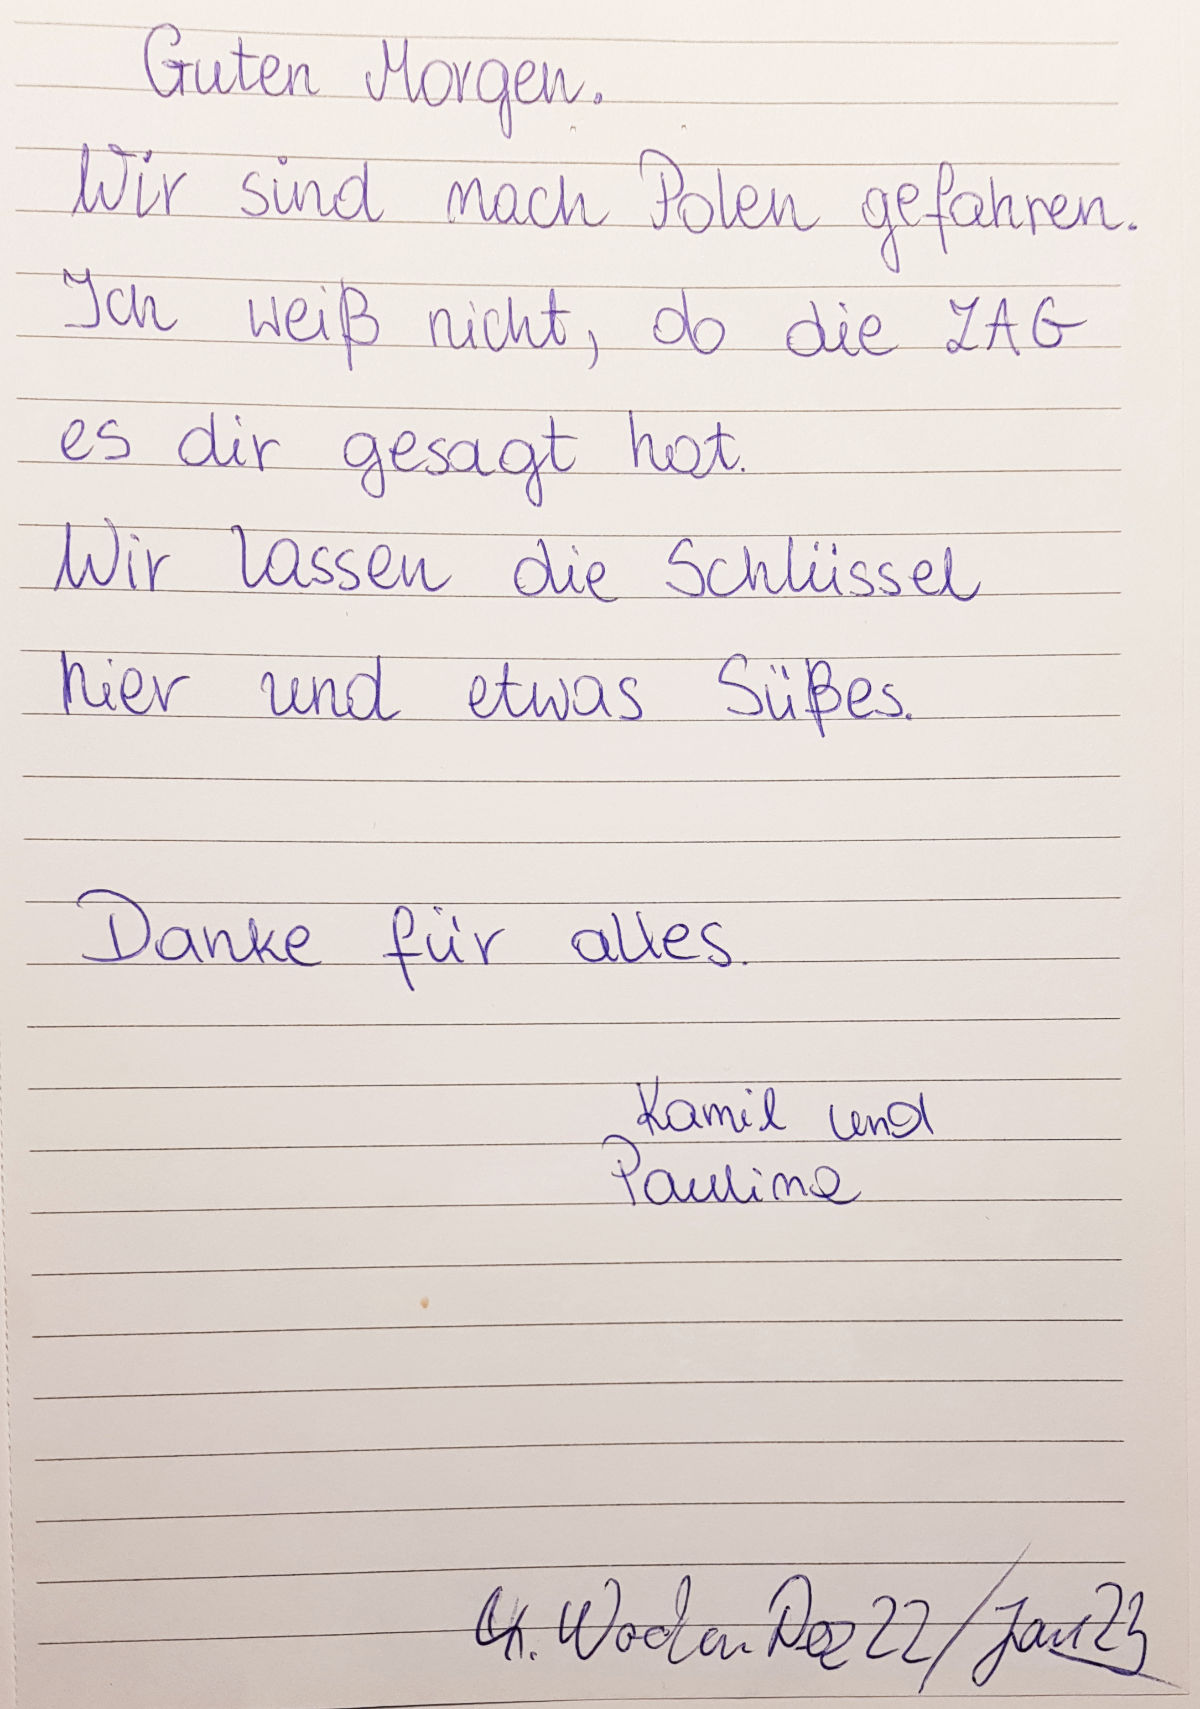 Guten Morgen.
Wir sind nach Polen gefahren.
Ich weiß nicht, ob die ZAG
es dir gesagt hat.
Wir lassen die Schlüssel
hier und etwas Süßes.
Danke für alles.
Kamil und
Paulina
Wochen Dez 22 / Jan 23